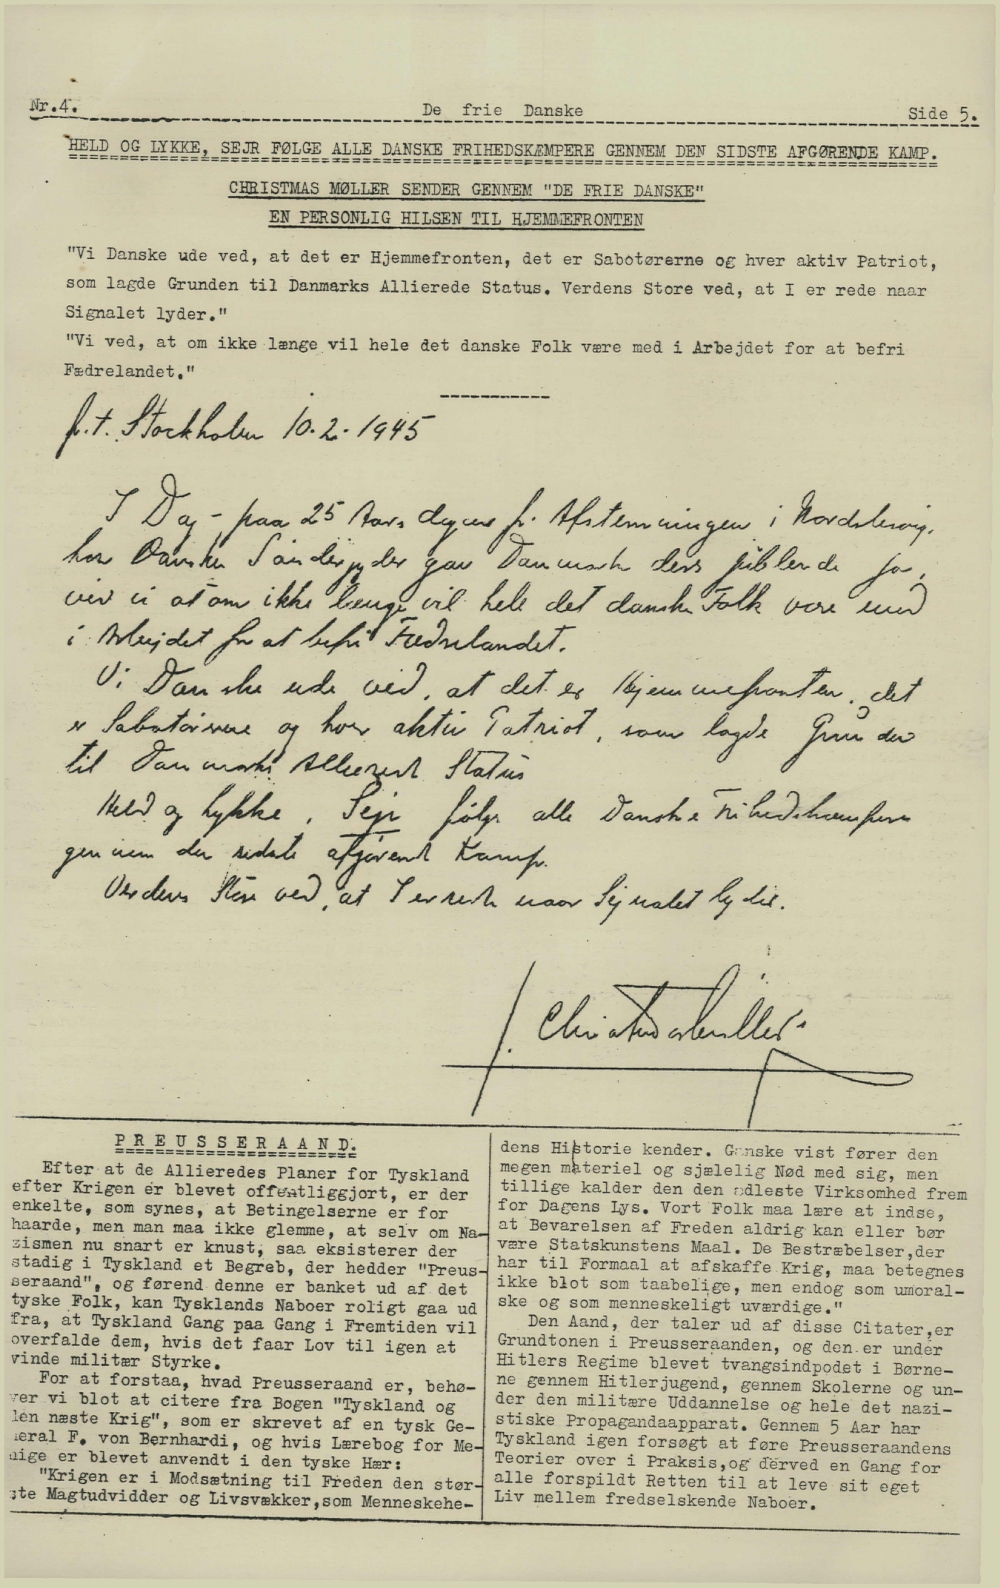 Nr.4. De frie Danske Side 5.
HELD OG LYKKE, SEJR FØLGE ALLE DANSKE FRIHEDSKÆMPERE GENNEM DEN SIDSTE AFGØRENDE KAMP.
CHRISTMAS MØLLER SENDER GENNEM "DE FRIE DANSKE"
EN PERSONLIG HILSEN TIL HJEMMEFRONTEN
"Vi Danske ude ved, at det er Hjemmefronten, det er Sabotørerne og hver aktiv Patriot,
som lagde Grunden til Danmarks Allierede Status. Verdens Store ved, at I er rede naar
Signalet lyder."
"Vi ved, at om ikke længe vil hele det danske Folk være med i Arbejdet for at befri
Fædrelandet."
p.t. Stockholm 10.2.1945
I Dag - paa 25 Aars dagen for Afstemningen i Nordslesvig,
hvor Danske Sønderjyder gav Danmark deres jublende Ja,
ved vi at om ikke længe vil hele det danske Folk være med
i Arbejdet for at befri Fædrelandet.
Vi Danske ude ved, at det er Hjemmefronten, det
er Sabotørerne og hver aktiv Patriot, som lagde Grunden
til Danmarks Allierede Status
Held og Lykke, Sejr følge alle Danske Frihedskæmpere
gennem den sidste afgørende Kamp.
Verdens Store ved, at I er rede naar Signalet lyder.
J. Christmas Møller
PREUSSERAAND.
Efter at de Allieredes Planer for Tyskland
efter Krigen er blevet offentliggjort, er der
enkelte, som synes, at Betingelserne er for
haarde, men man maa ikke glemme, at selv om Na-
zismen nu snart er knust, saa eksisterer der
stadig i Tyskland et Begreb, der hedder "Preus-
seraand", og førend denne er banket ud af det
tyske Folk, kan Tysklands Naboer roligt gaa ud
fra, at Tyskland Gang paa Gang i Fremtiden vil
overfalde dem, hvis det faar Lov til igen at
vinde militær Styrke.
For at forstaa, hvad Preusseraand er, behø-
ver vi blot at citere fra Bogen "Tyskland og
den næste Krig", som er skrevet af en tysk Ge-
neral F. von Bernhardi, og hvis Lærebog for Me-
nige er blevet anvendt i den tyske Hær:
"Krigen er i Modsætning til Freden den stør-
ste Magtudvidder og Livsvækker, som Menneskehe-
dens Historie kender. Ganske vist fører den
megen materiel og sjælelig Nød med sig, men
tillige kalder den den ædleste Virksomhed frem
for Dagens Lys. Vort Folk maa lære at indse,
at Bevarelsen af Freden aldrig kan eller bør
være Statskunstens Maal. De Bestræbelser,der
har til Formaal at afskaffe Krig, maa betegnes
ikke blot som taabelige, men endog som umoral-
ske og som menneskeligt uværdige."
Den Aand, der taler ud af disse Citater,er
Grundtonen i Preusseraanden, og den er under
Hitlers Regime blevet tvangsindpodet i Børne-
ne gennem Hitlerjugend, gennem Skolerne og un-
der den militære Uddannelse og hele det nazi-
stiske Propagandaapparat. Gennem 5 Aar har
Tyskland igen forsøgt at føre Preusseraandens
Teorier over i Praksis,og derved en Gang for
alle forspildt Retten til at leve sit eget
Liv mellem fredselskende Naboer.